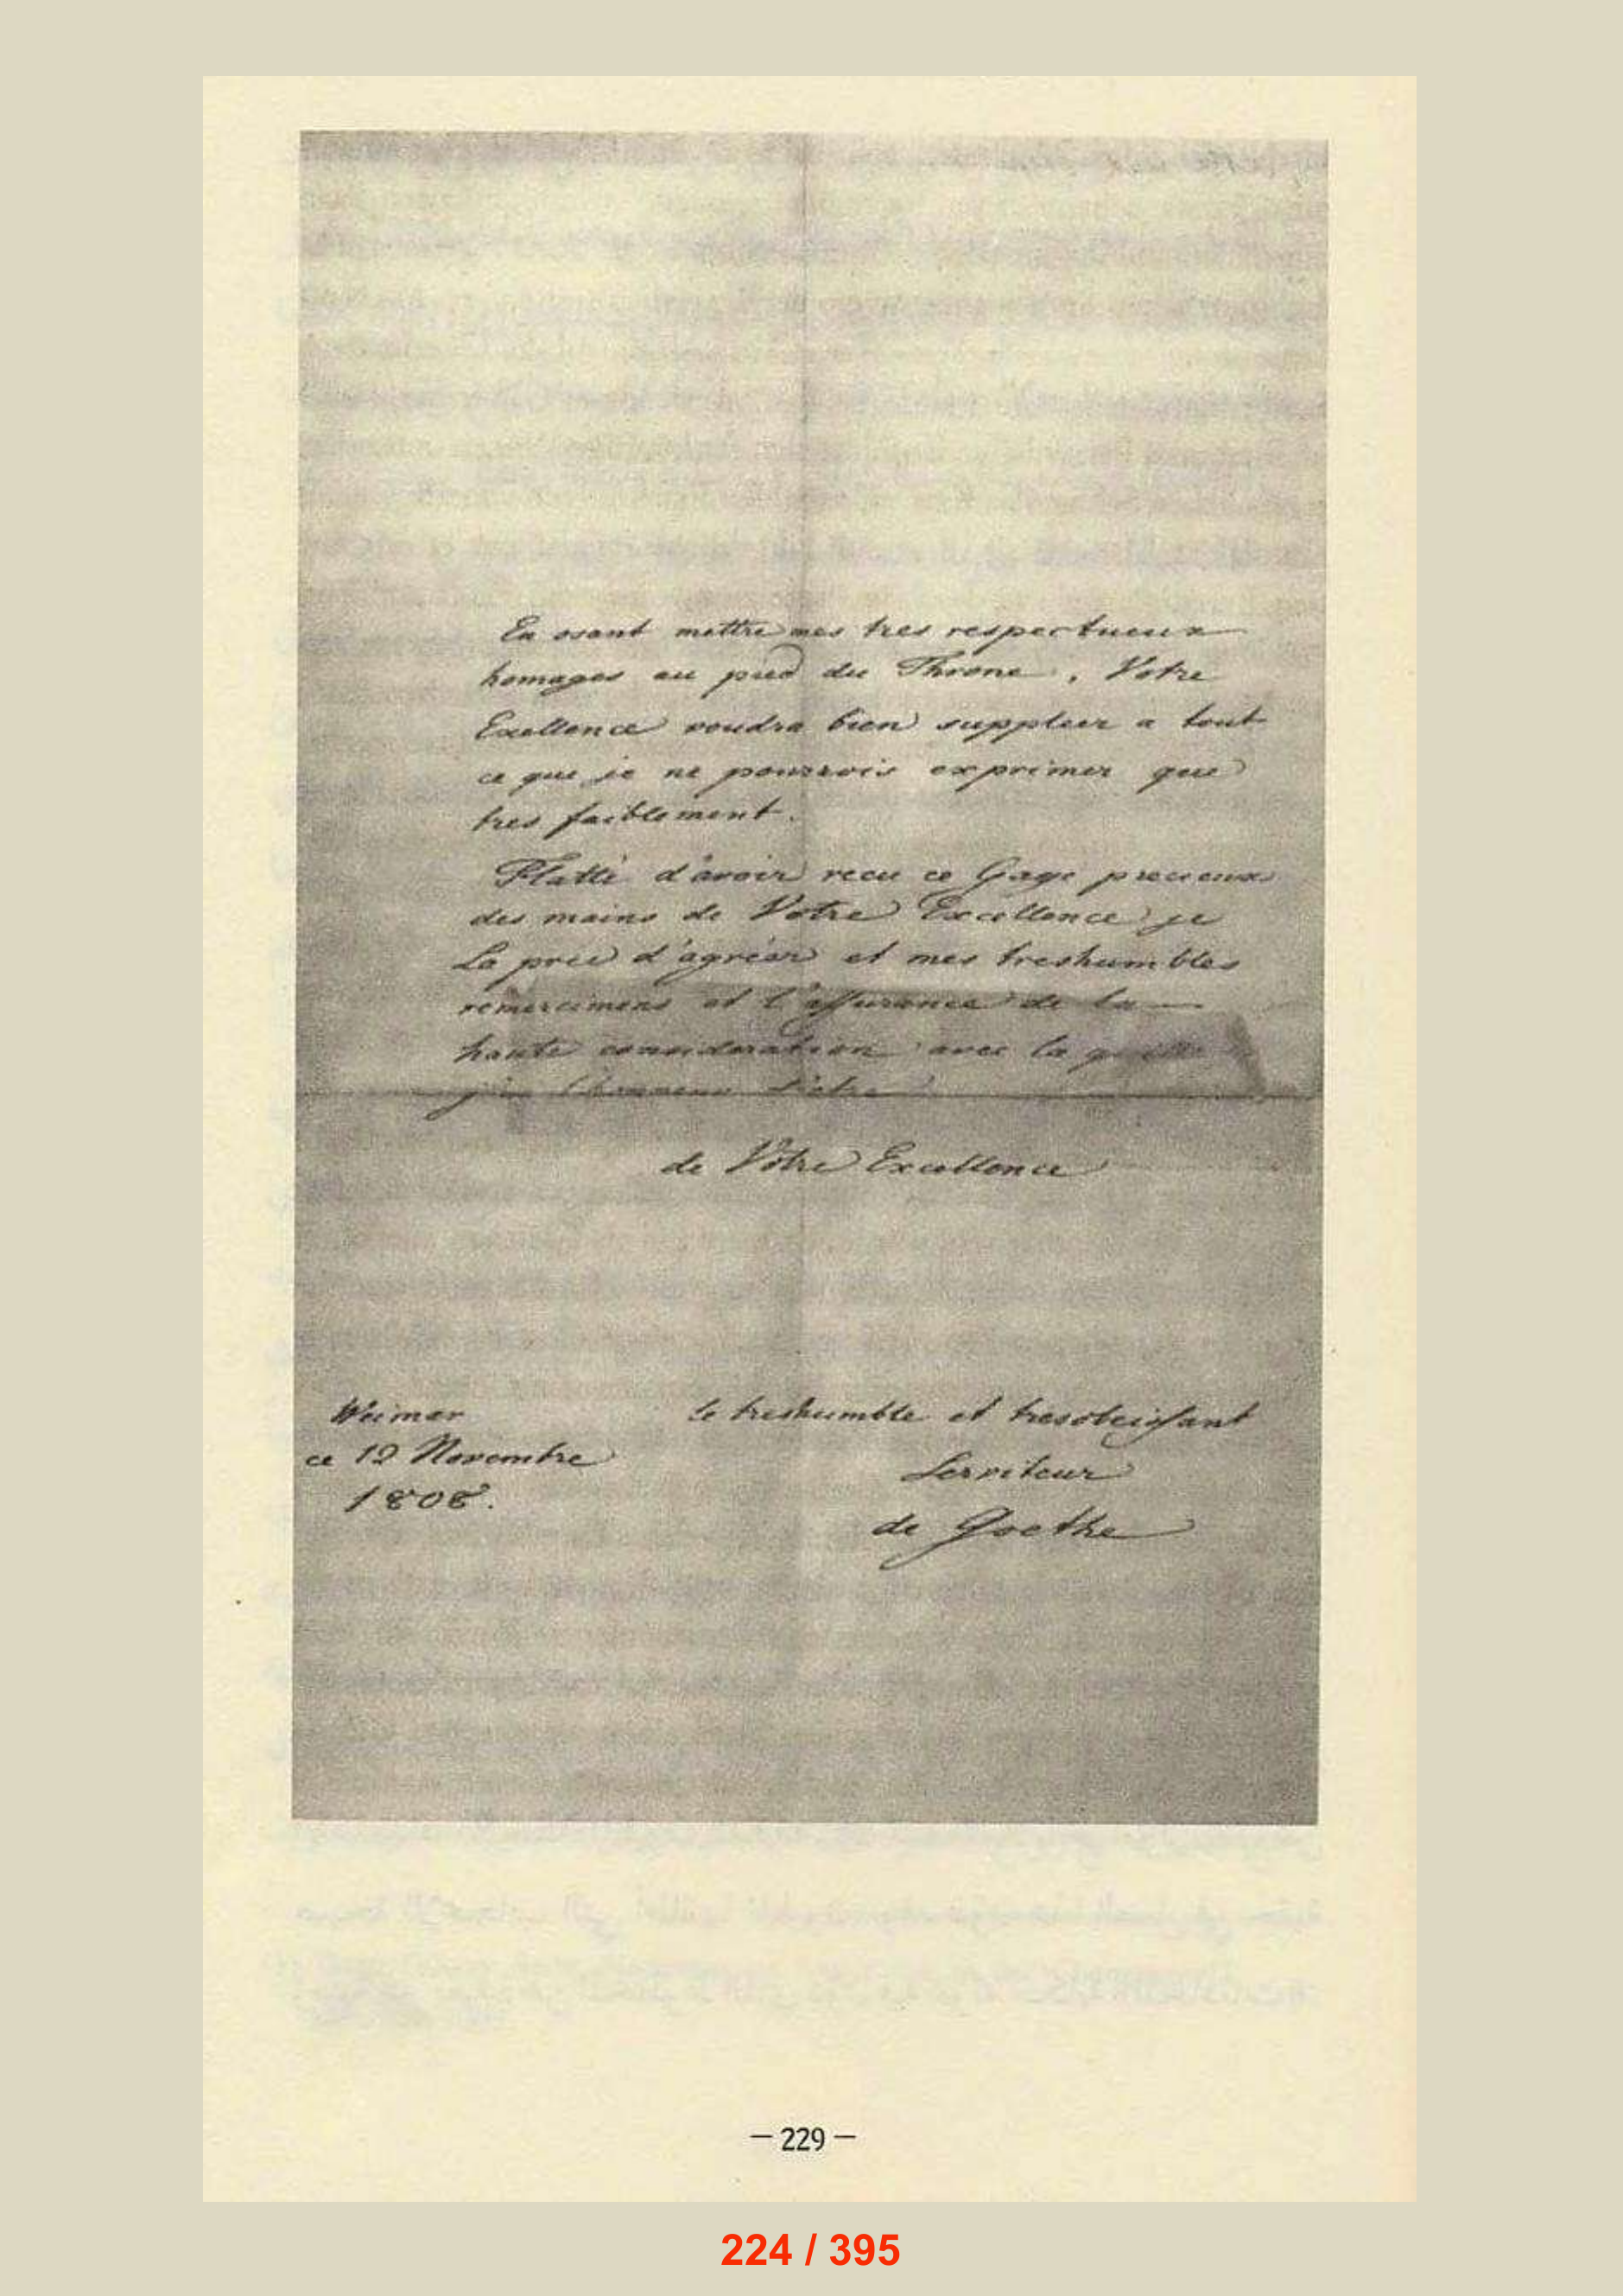 En osant mettre mes tres respectueux
homages au pied du Throne, Votre
Exellence voudra bien suppleer a tout
ce que je ne pourrois exprimer que
tres faiblement.
Flatté d'avoir recu ce Gage precieux
des mains de Votre Excellence je
La prie d'agréer et mes treshumbles
remercimens et l'assurance de la
haute consideration avec la quelle
j'ai l'honneur d'etre
de Votre Excellence
Weimar
ce 12 Novembre
1808.
le treshumble et tresobeissant
Serviteur
de Goethe
— 229 —
224 / 395